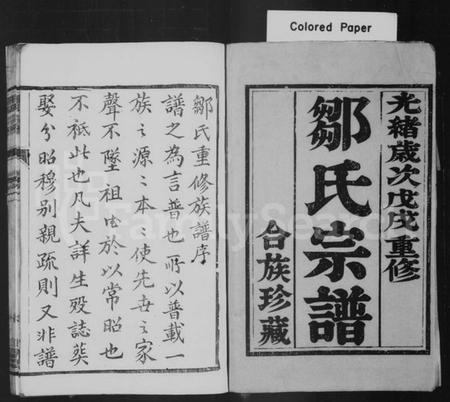 Colored Paper
光緒歲次戊戌重修
鄒氏宗譜
合族珍藏
鄒氏重修族譜序
譜之為言普也所以普載一
族之源之本之使先世之家
聲不墜祖功於以常昭也
不祗此也凡夫詳生殁誌葬
娶分昭穆別親疏則又非譜
FamilySearch